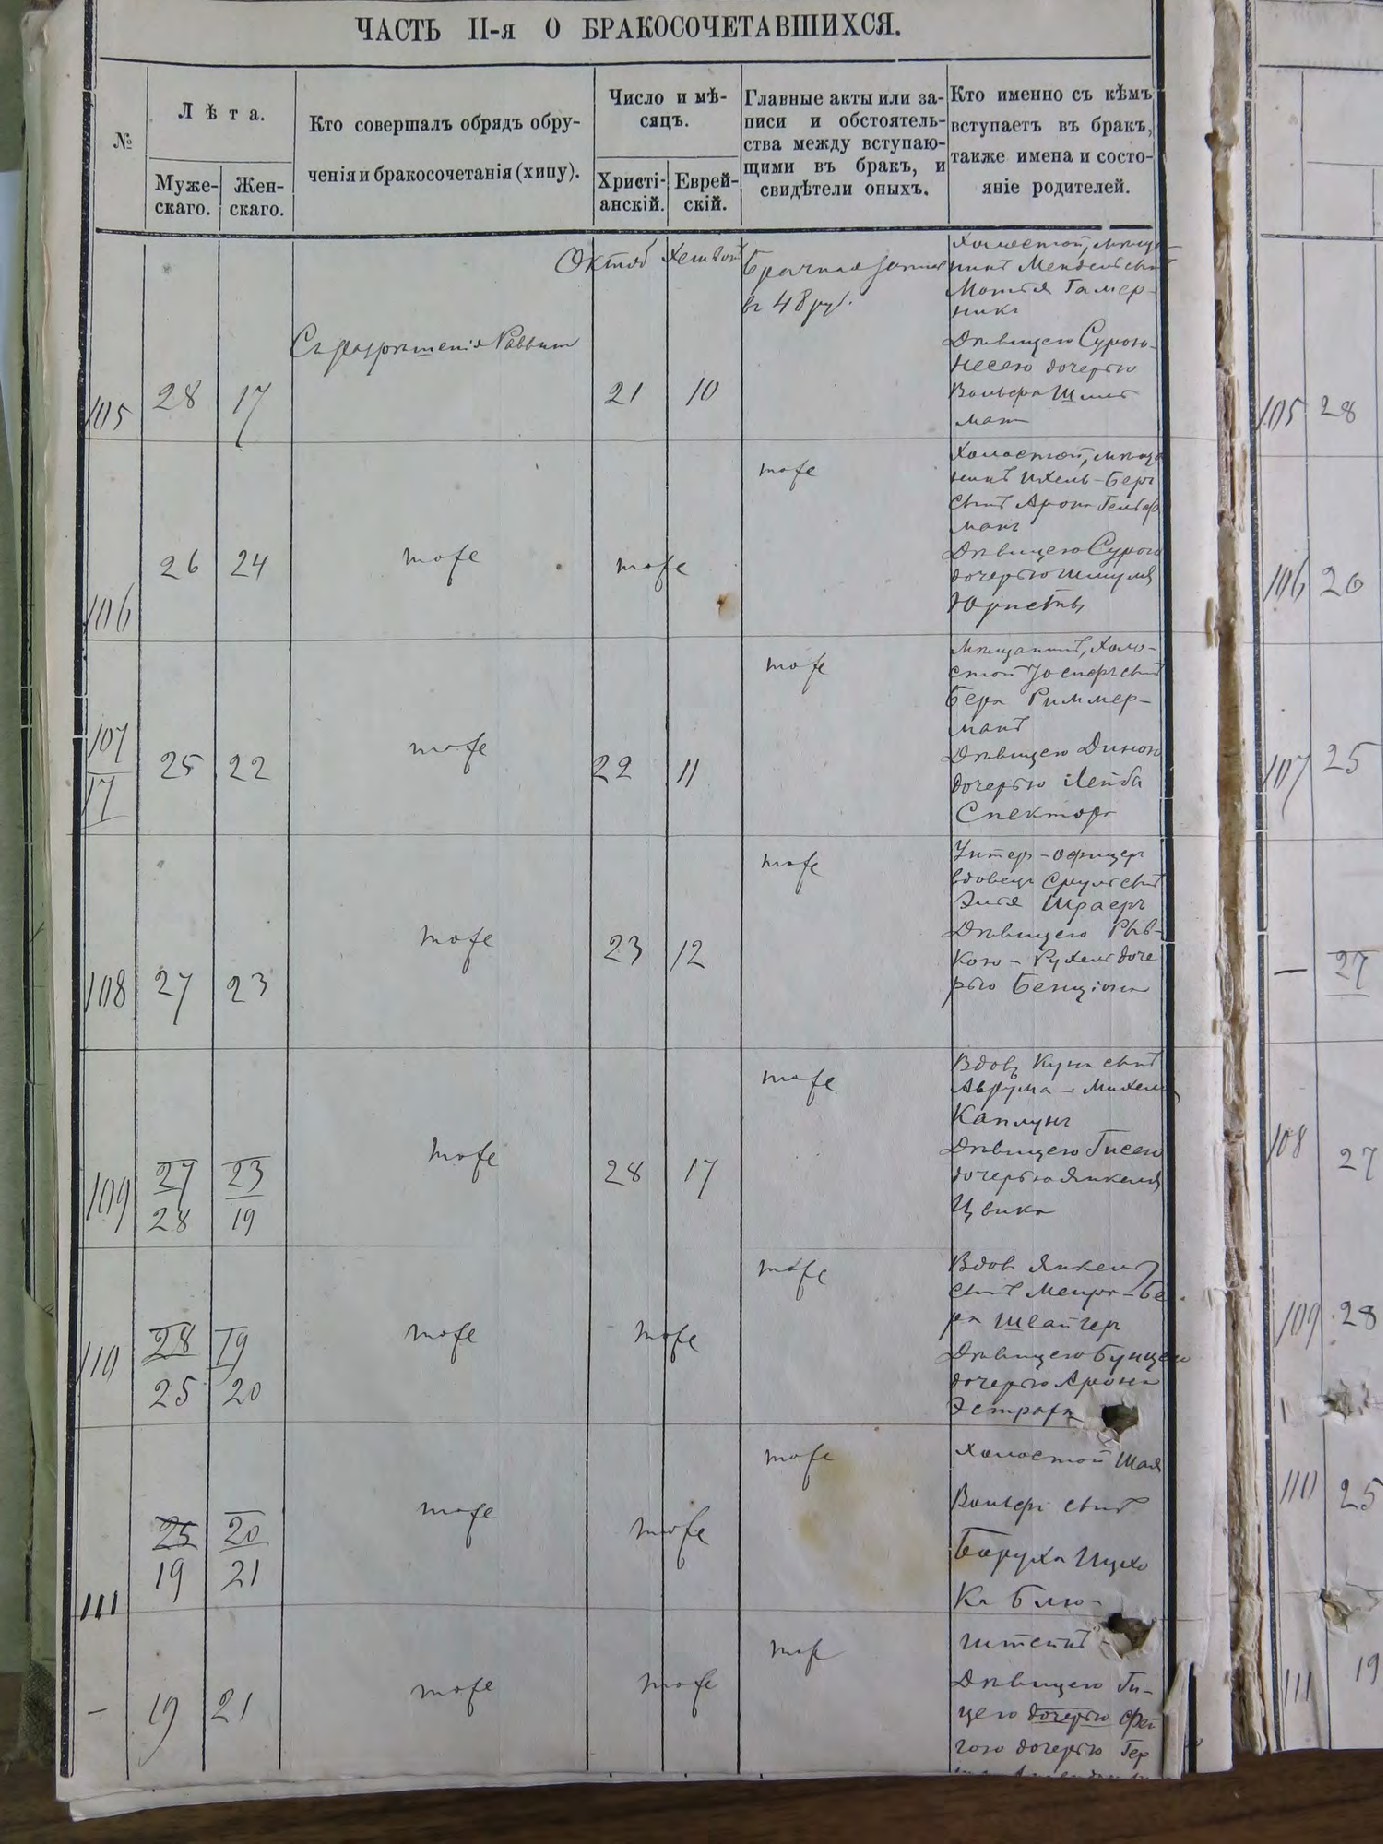 ЧАСТЬ II-я О БРАКОСОЧЕТАВШИХСЯ.
№
Лѣта.
Муже-
скаго.
Жен-
скаго.
Кто совершалъ обрядъ обру-
ченія и бракосочетанія (хипу).
Число и мѣ-
сяцъ.
Христі-
анскій.
Еврей-
скій.
Главные акты или за-
писи и обстоятель-
ства между вступаю-
щими въ бракъ, и
свидѣтели оныхъ.
Кто именно съ кѣмъ
вступаетъ въ бракъ,
также имена и состо-
яніе родителей.
105
28
17
Съ разрѣшенія Раввина
Октяб
21
10
Брачная запись
в 48 руб.
Холостой, мѣща-
нинъ Мендель сынъ
Мотя Гамер-
ника
Дѣвицею Сурою-
Несею дочерью
Вольфа
106
26
24
тоже
тоже
тоже
Холостой, мѣща
нинъ Ихель-Беръ
сынъ Арона
манъ
Дѣвицею Сурою
дочерью Шмуля
107
17
25
22
тоже
22
11
тоже
Мѣщанинъ, холо-
стой Іосифъ сынъ
Бера Риммер-
манъ
Дѣвицею Диною
дочерью Лейба
Спектора
108
27
23
тоже
23
12
тоже
Унтер-офицеръ
вдовецъ Сруль сынъ
Эля Шраеръ
Дѣвицею Рив-
кою-Рухель доче
рью Бенціона
109
27 23
28 19
тоже
28
17
тоже
Вдов сынъ
Аврума-Михеля
Каплунъ
Дѣвицею Гисею
дочерью Янкеля
Цвика
110
28 19
25 20
тоже
тоже
тоже
Вдов Янкель
сынъ Меира-Бе
ра Швайгеръ
Дѣвицею Бунцею
дочерью Арона
111
25 20
19 21
тоже
тоже
тоже
Холостой Шая
Вольфъ сынъ
Боруха Ицхо
ка Блю-
—
19
21
тоже
тоже
тоже
штейнъ
Дѣвицею Ги-
цею дочерью Фей
гою дочерью Гер
105 28
106 26
107 25
— 27
108 27
109 28
111 25
111 19